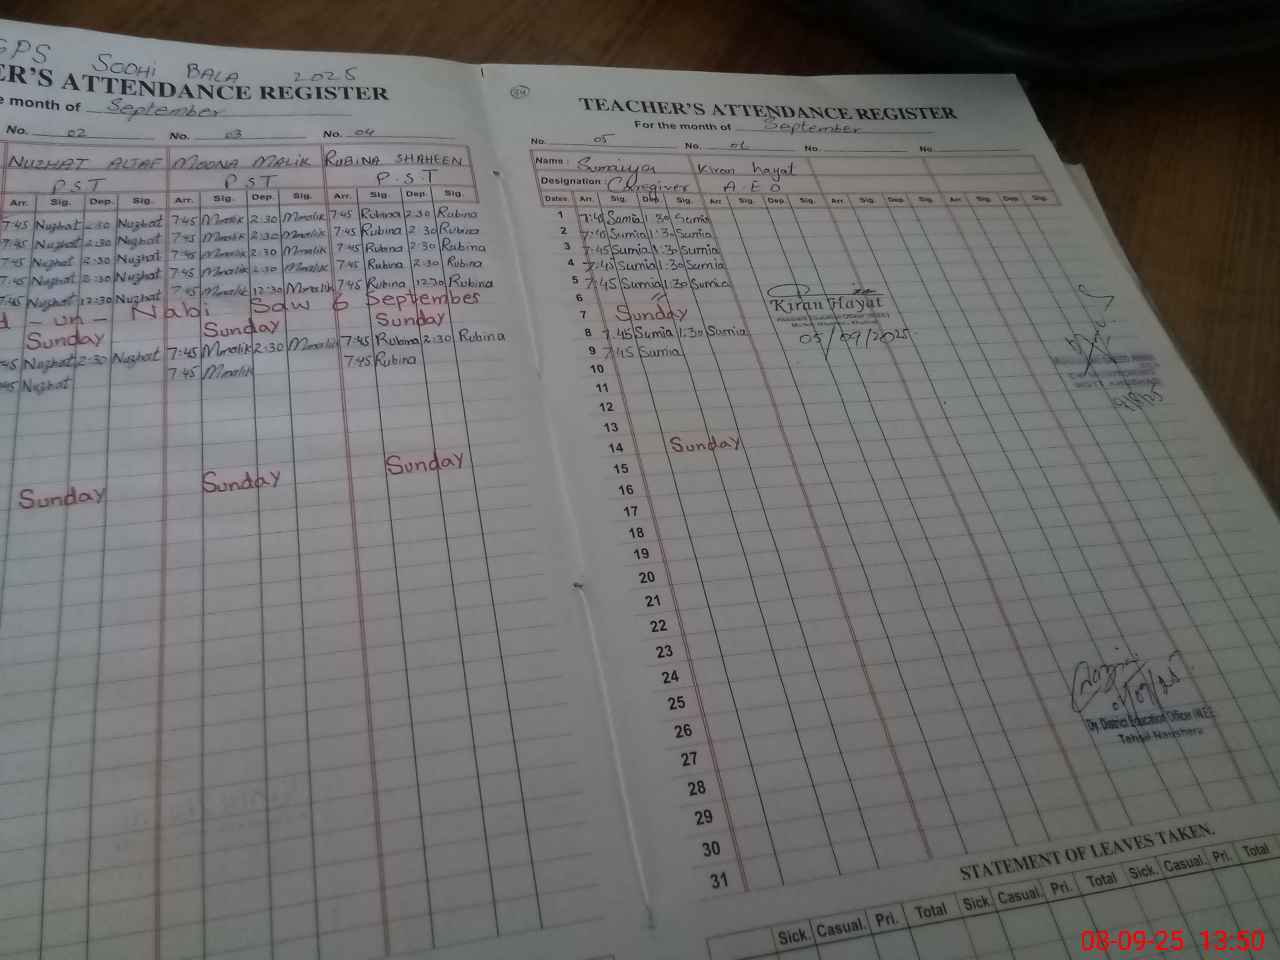 GPS SODHI BALA 2025
ER'S ATTENDANCE REGISTER
e month of September
No. 02 No. 03 No. 04
NUZHAT ALTAF MOONA MALIK RUBINA SHAHEEN
P S T P S T P.S.T
Arr. Sig. Dep. Sig. Arr. Sig. Dep. Sig. Arr. Sig. Dep. Sig.
7:45 Nuzhat 2:30 Nuzhat 7:45 Mmalik 2:30 Mmalik 7:45 Rubina 2:30 Rubina
7:45 Nuzhat 2:30 Nuzhat 7:45 Mmalik 2:30 Mmalik 7:45 Rubina 2:30 Rubina
7:45 Nuzhat 2:30 Nuzhat 7:45 Mmalik 2:30 Mmalik 7:45 Rubina 2:30 Rubina
7:45 Nuzhat 2:30 Nuzhat 7:45 Mmalik 2:30 Mmalik 7:45 Rubina 2:30 Rubina
7:45 Nuzhat 12:30 Nuzhat 7:45 Mmalik 12:30 Mmalik 7:45 Rubina 12:30 Rubina
d - un - Nabi Saw 6 September
Sunday Sunday Sunday
45 Nuzhat 2:30 Nuzhat 7:45 Mmalik 2:30 Mmalik 7:45 Rubina 2:30 Rubina
45 Nuzhat 7:45 Mmalik 7:45 Rubina
Sunday Sunday Sunday
TEACHER'S ATTENDANCE REGISTER
For the month of September
No. 05 No. No. No.
Name: Sumaiya Kiran hayat
Designation: Caregiver A.E.O
Dates Arr. Sig. Dep. Sig. Arr. Sig. Dep. Sig. Arr. Sig. Dep. Sig. Arr. Sig. Dep. Sig.
1 7:40 Sumia 1:30 Sumia
2 7:40 Sumia 1:30 Sumia
3 7:45 Sumia 1:30 Sumia
4 7:45 Sumia 1:30 Sumia
5 7:45 Sumia 1:30 Sumia
6 "
7 Sunday
8 7.45 Sumia 1:30 Sumia
9 7:45 Sumia
10
11
12
13
14 Sunday
15
16
17
18
19
20
21
22
23
24
25
26
27
28
29
30
31
Kiran Hayat
05/09/2025
Dy. District Education Officer (W.EE
Tehsil Nowshera
STATEMENT OF LEAVES TAKEN.
Sick. Casual. Pri. Total Sick. Casual. Pri. Total Sick. Casual. Pri. Total
08-09-25 13:50